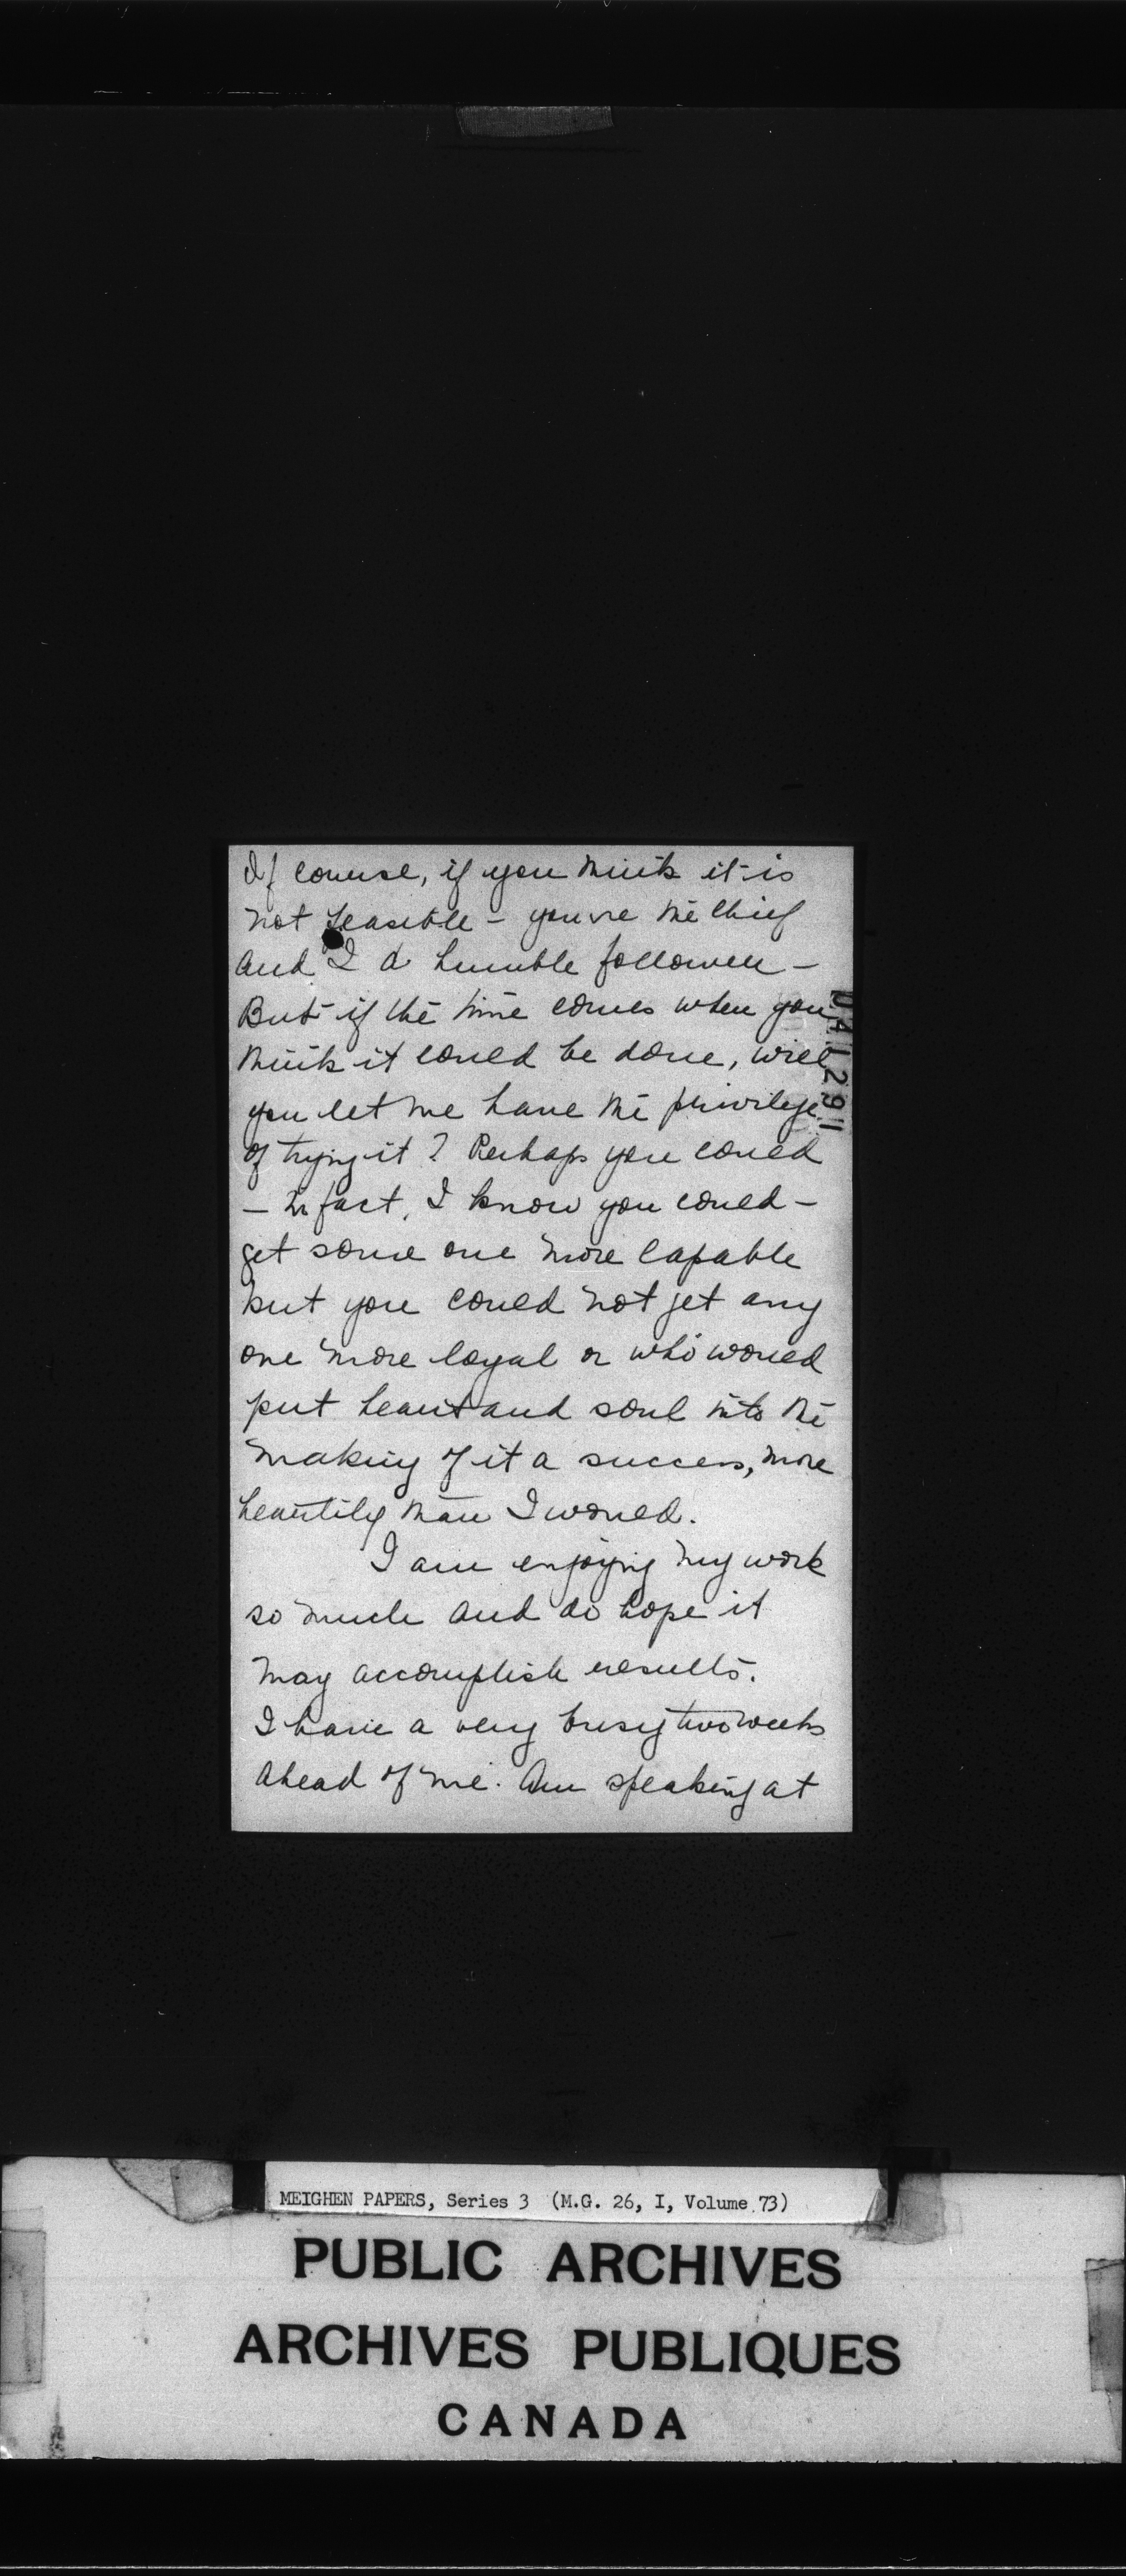 Of course, if you think it is
not feasible - you're the chief
and I a humble follower -
But if the time comes when you
think it could be done, will
you let me have the privilege
of trying it? Perhaps you could
- in fact, I know you could -
get some one more capable
but you could not get any
one more loyal or who would
put heart and soul into the
making of it a success, more
heartily than I would.
I am enjoying my work
so much and do hope it
may accomplish results.
I have a very busy two weeks
ahead of me. Am speaking at
041291
MEIGHEN PAPERS, Series 3 (M.G. 26, I, Volume 73)
PUBLIC ARCHIVES
ARCHIVES PUBLIQUES
CANADA